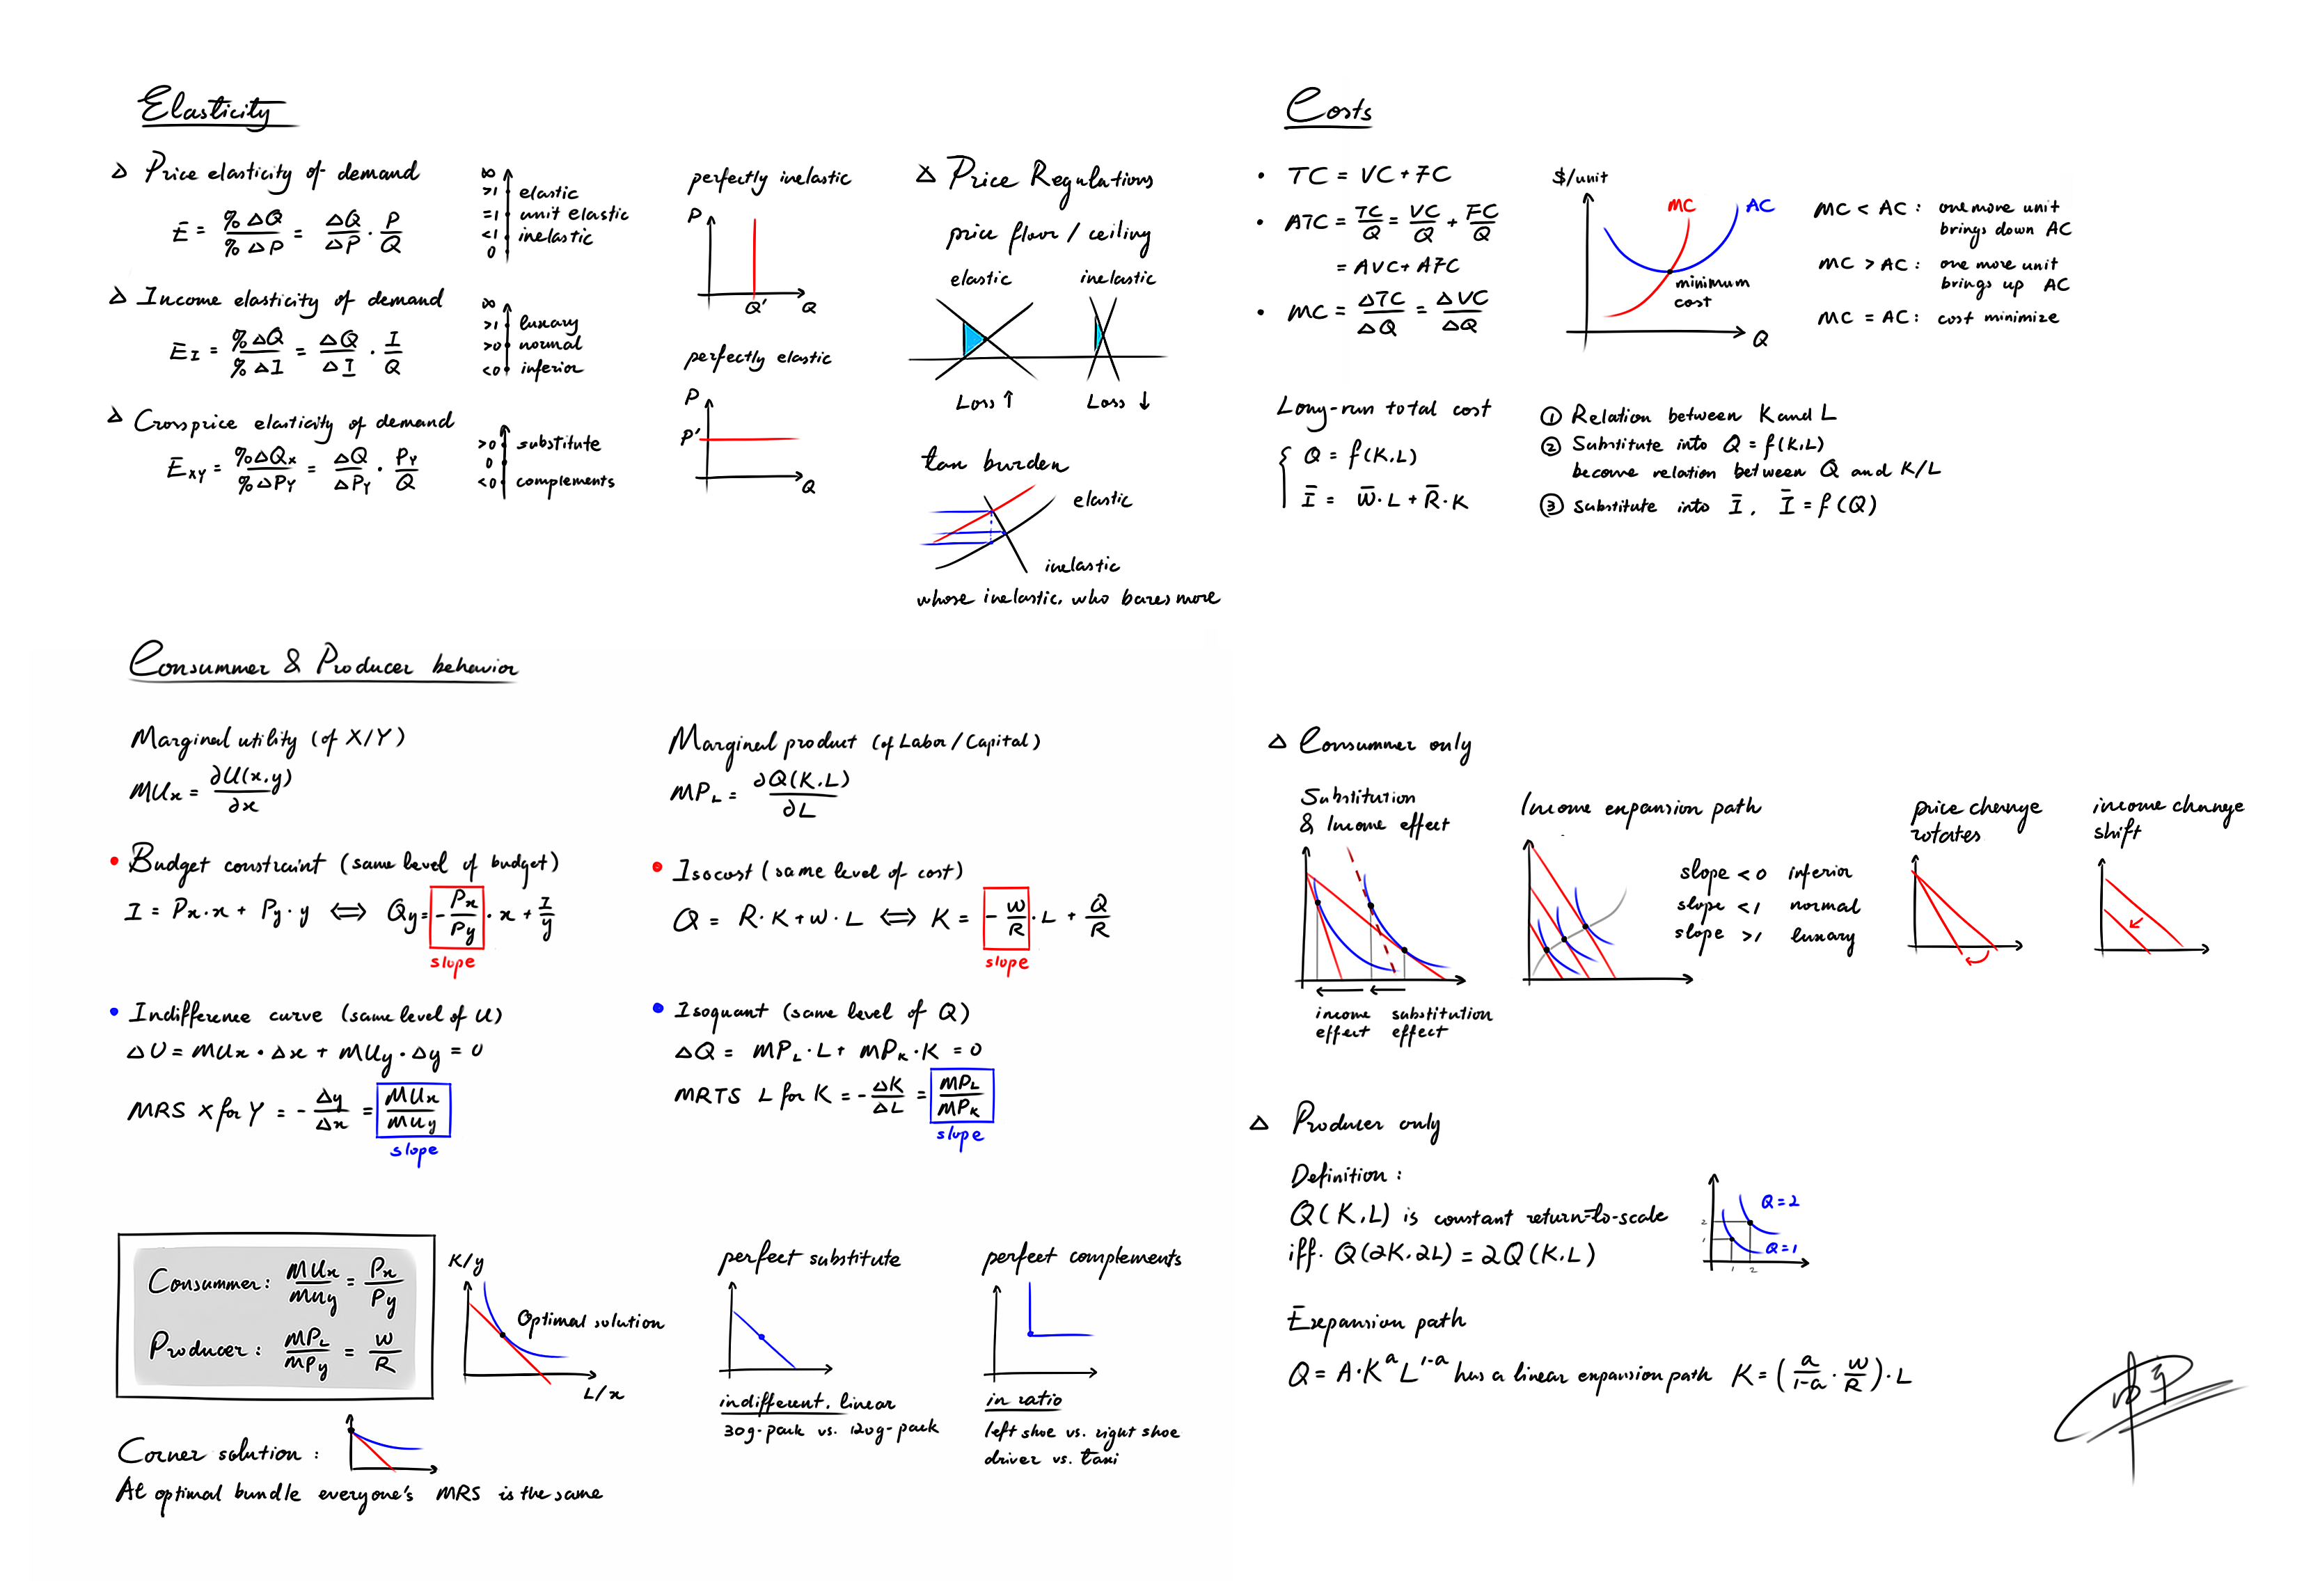 Elasticity
△ Price elasticity of demand
E = %ΔQ / %ΔP = ΔQ/ΔP · P/Q
∞
>1 elastic
=1 unit elastic
<1 inelastic
0
△ Income elasticity of demand
E_I = %ΔQ / %ΔI = ΔQ/ΔI · I/Q
∞
>1 luxury
>0 normal
<0 inferior
△ Cross price elasticity of demand
E_XY = %ΔQx / %ΔPY = ΔQ/ΔPY · PY/Q
>0 substitute
0
<0 complements
perfectly inelastic
P
Q'
Q
perfectly elastic
P
P'
Q
△ Price Regulations
price floor / ceiling
elastic
inelastic
Loss ↑
Loss ↓
tax burden
elastic
inelastic
whose inelastic, who bares more
Costs
• TC = VC + FC
• ATC = TC/Q = VC/Q + FC/Q
= AVC + AFC
• MC = ΔTC/ΔQ = ΔVC/ΔQ
$/unit
MC
AC
minimum
cost
Q
MC < AC : one more unit
brings down AC
MC > AC : one more unit
brings up AC
MC = AC : cost minimize
Long-run total cost
Q = f(K.L)
Ī = W̄·L + R̄·K
① Relation between K and L
② Substitute into Q = f(K.L)
become relation between Q and K/L
③ substitute into Ī, Ī = f(Q)
Consummer & Producer behavior
Marginal utility (of X/Y)
MUx = ∂U(x.y) / ∂x
• Budget constraint (same level of budget)
I = Px·x + Py·y ⟺ Qy = -Px/Py · x + I/y
slope
• Indifference curve (same level of U)
ΔU = MUx·Δx + MUy·Δy = 0
MRS X for Y = -Δy/Δx = MUx/MUy
slope
Marginal product (of Labor/Capital)
MPL = ∂Q(K.L) / ∂L
• Isocost (same level of cost)
Q = R·K + w·L ⟺ K = -w/R · L + Q/R
slope
• Isoquant (same level of Q)
ΔQ = MPL·L + MPK·K = 0
MRTS L for K = -ΔK/ΔL = MPL/MPK
slope
Consummer: MUx/MUy = Px/Py
Producer: MPL/MPy = w/R
K/y
Optimal solution
L/x
Corner solution :
At optimal bundle everyone's MRS is the same
perfect substitute
indifferent. linear
30g-pack vs. 120g-pack
perfect complements
in ratio
left shoe vs. right shoe
driver vs. taxi
△ Consummer only
Substitution
& Income effect
income
effect
substitution
effect
Income expansion path
slope <0 inferior
slope <1 normal
slope >1 luxury
price change
rotates
income change
shift
△ Producer only
Definition :
Q(K.L) is constant return-to-scale
iff. Q(2K.2L) = 2Q(K.L)
Q=2
Q=1
2
1
1
2
Expansion path
Q = A·K^a L^1-a has a linear expansion path K = (a/1-a · w/R)·L